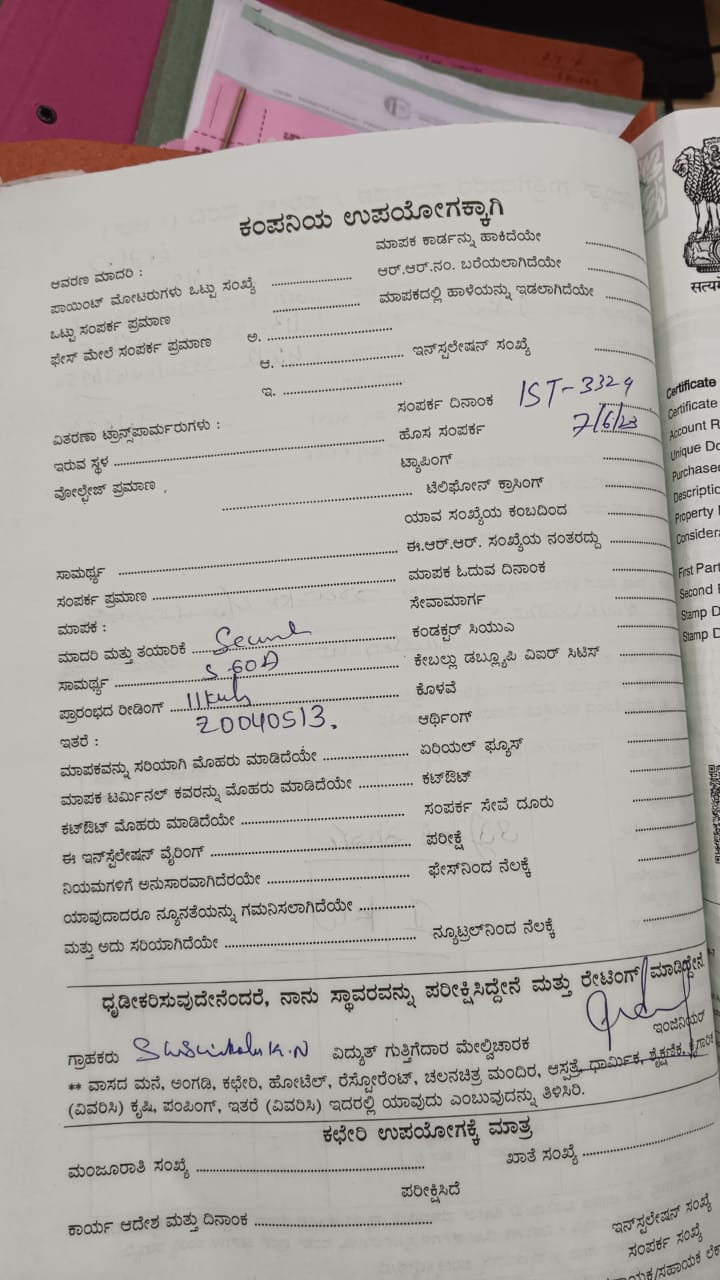 ಕಂಪನಿಯ ಉಪಯೋಗಕ್ಕಾಗಿ
ಮಾಪಕ ಕಾರ್ಡನ್ನು ಹಾಕಿದೆಯೇ
ಆವರಣ ಮಾದರಿ :
ಆರ್.ಆರ್.ನಂ. ಬರೆಯಲಾಗಿದೆಯೇ
ಪಾಯಿಂಟ್ ಮೋಟರುಗಳು ಒಟ್ಟು ಸಂಖ್ಯೆ
ಮಾಪಕದಲ್ಲಿ ಹಾಳೆಯನ್ನು ಇಡಲಾಗಿದೆಯೇ
ಒಟ್ಟು ಸಂಪರ್ಕ ಪ್ರಮಾಣ
ಫೇಸ್ ಮೇಲೆ ಸಂಪರ್ಕ ಪ್ರಮಾಣ ಅ.
ಆ. ಇನ್‌ಸ್ಪಲೇಷನ್ ಸಂಖ್ಯೆ
ಇ.
ಸಂಪರ್ಕ ದಿನಾಂಕ IST-3329
ವಿತರಣಾ ಟ್ರಾನ್ಸ್‌ಪಾರ್ಮರುಗಳು :
ಹೊಸ ಸಂಪರ್ಕ 7/6/23
ಇರುವ ಸ್ಥಳ
ಟ್ಯಾಪಿಂಗ್
ವೋಲ್ಟೇಜ್ ಪ್ರಮಾಣ
ಟೆಲಿಫೋನ್ ಕ್ರಾಸಿಂಗ್
ಯಾವ ಸಂಖ್ಯೆಯ ಕಂಬದಿಂದ
ಸಾಮರ್ಥ್ಯ ಈ.ಆರ್.ಆರ್. ಸಂಖ್ಯೆಯ ನಂತರದ್ದು
ಸಂಪರ್ಕ ಪ್ರಮಾಣ ಮಾಪಕ ಓದುವ ದಿನಾಂಕ
ಮಾಪಕ : ಸೇವಾಮಾರ್ಗ
ಮಾದರಿ ಮತ್ತು ತಯಾರಿಕೆ ಕಂಡಕ್ಟರ್ ಸಿಯುಎ
ಸಾಮರ್ಥ್ಯ 5-60A ಕೇಬಲ್ಲು ಡಬ್ಲ್ಯೂಪಿ ವಿಐಆರ್ ಸಿಟಿಸ್
ಪ್ರಾರಂಭದ ರೀಡಿಂಗ್ ಕೊಳವೆ
ಇತರೆ : 20040513. ಆರ್ಥಿಂಗ್
ಮಾಪಕವನ್ನು ಸರಿಯಾಗಿ ಮೊಹರು ಮಾಡಿದೆಯೇ ಏರಿಯಲ್ ಫ್ಯೂಸ್
ಮಾಪಕ ಟರ್ಮಿನಲ್ ಕವರನ್ನು ಮೊಹರು ಮಾಡಿದೆಯೇ ಕಟ್‌ಔಟ್
ಕಟ್‌ಔಟ್ ಮೊಹರು ಮಾಡಿದೆಯೇ ಸಂಪರ್ಕ ಸೇವೆ ದೂರು
ಈ ಇನ್‌ಸ್ಪೆಲೇಷನ್ ವೈರಿಂಗ್ ಪರೀಕ್ಷೆ
ನಿಯಮಗಳಿಗೆ ಅನುಸಾರವಾಗಿದೆರಯೇ ಫೇಸ್‌ನಿಂದ ನೆಲಕ್ಕೆ
ಯಾವುದಾದರೂ ನ್ಯೂನತೆಯನ್ನು ಗಮನಿಸಲಾಗಿದೆಯೇ
ಮತ್ತು ಅದು ಸರಿಯಾಗಿದೆಯೇ ನ್ಯೂಟ್ರಲ್‌ನಿಂದ ನೆಲಕ್ಕೆ
ಧೃಡೀಕರಿಸುವುದೇನೆಂದರೆ, ನಾನು ಸ್ಥಾವರವನ್ನು ಪರೀಕ್ಷಿಸಿದ್ದೇನೆ ಮತ್ತು ರೇಟಿಂಗ್ ಮಾಡಿದ್ದೇನೆ
ಇಂಜಿನಿಯರ್
ಗ್ರಾಹಕರು ವಿದ್ಯುತ್ ಗುತ್ತಿಗೆದಾರ ಮೇಲ್ವಿಚಾರಕ
** ವಾಸದ ಮನೆ, ಅಂಗಡಿ, ಕಛೇರಿ, ಹೋಟೆಲ್, ರೆಸ್ಟೋರೆಂಟ್, ಚಲನಚಿತ್ರ ಮಂದಿರ, ಆಸ್ಪತ್ರೆ, ಧಾರ್ಮಿಕ, ಶೈಕ್ಷಣಿಕ, ಕೈಗಾರಿಕೆ
(ವಿವರಿಸಿ) ಕೃಷಿ, ಪಂಪಿಂಗ್, ಇತರೆ (ವಿವರಿಸಿ) ಇದರಲ್ಲಿ ಯಾವುದು ಎಂಬುವುದನ್ನು ತಿಳಿಸಿರಿ.
ಕಛೇರಿ ಉಪಯೋಗಕ್ಕೆ ಮಾತ್ರ
ಮಂಜೂರಾತಿ ಸಂಖ್ಯೆ ಖಾತೆ ಸಂಖ್ಯೆ
ಪರೀಕ್ಷಿಸಿದೆ
ಕಾರ್ಯ ಆದೇಶ ಮತ್ತು ದಿನಾಂಕ
ಇನ್‌ಸ್ಪೆಲೇಷನ್ ಸಂಖ್ಯೆ
ಸಂಪರ್ಕ ಸಂಖ್ಯೆ
Certificate
Certificate
Account R
Unique Do
Purchased
Descriptio
Property
Considera
First Part
Second
Stamp D
Stamp D